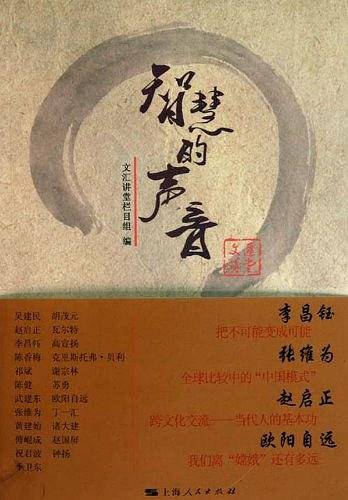 智慧的声音
文汇讲堂栏目组 编
文汇讲堂
吴建民 胡茂元
赵启正 瓦尔特
李昌钰 高宣扬
陈香梅 克里斯托弗·贝利
祁斌 谢宗林
陈健 苏勇
武建东 欧阳自远
张维为 丁一汇
黄建始 诸大建
傅崐成 赵国屏
祝君波 钟扬
李卫东
李昌钰
把不可能变成可能
张维为
全球比较中的“中国模式”
赵启正
跨文化交流——当代人的基本功
欧阳自远
我们离“嫦娥”还有多远
上海人民出版社